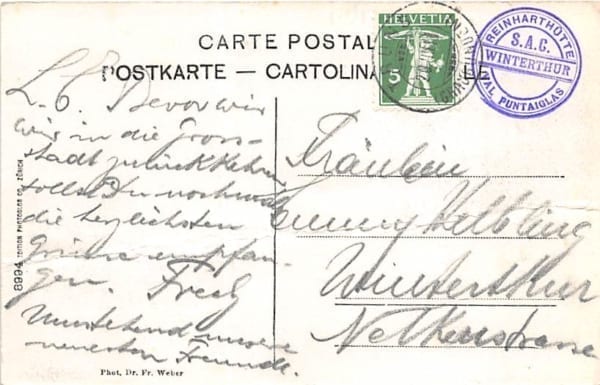 CARTE POSTALE
POSTKARTE — CARTOLINA POSTALE
HELVETIA
5
REINHARTHÜTTE
S.A.C.
WINTERTHUR
VAL PUNTAIGLAS
L. E. Bevor wir
wir in die Gross-
stadt zurückkehren
sollst Du nochmals
die herzlichsten
Grüsse empfan-
gen. Fredy
Umstehend unsere
neuesten Freunde.
Fräulein
Emmy Helbling
Winterthur
Nelkenstrasse
8994 EDITION PHOTOGLOB CO. ZÜRICH
Phot. Dr. Fr. Weber